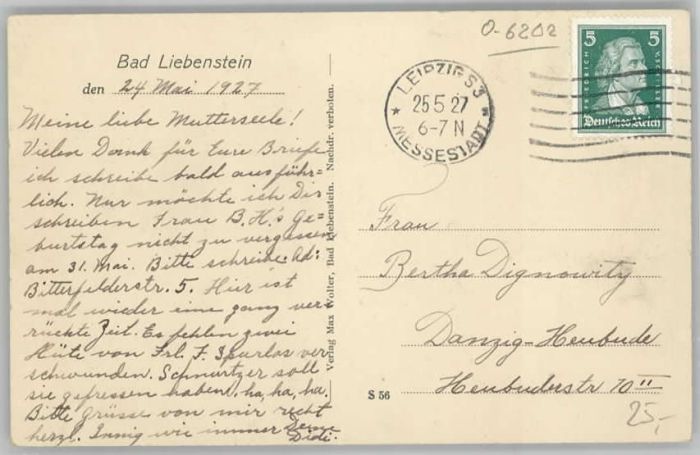 O-6202
Bad Liebenstein
den 24 Mai 1927
Meine liebe Mutterseele!
Vielen Dank für Eure Briefe
ich schreibe bald ausführ=
lich. Nur möchte ich Dir
schreiben Frau B. H.s Ge=
burtstag nicht zu vergessen
am 31. Mai. Bitte schreibe. Ad:
Bitterfelderstr. 5. Hier ist
mal wieder eine ganz ver=
rückte Zeit. Es fehlen zwei
Hüte von Frl. F. Spurlos ver
schwunden. Schnurtzer soll
sie gefressen haben!, ha, ha, ha.
Bitte grüsse von mir recht
herzl. Innig wie immer Deine
Didi.
Verlag Max Wolter, Bad Liebenstein. Nachdr. verboten.
LEIPZIG S3
25.5.27
6-7 N
MESSESTADT
5 5
FRIEDRICH
Deutsches Reich
Frau
Bertha Dignowity
Danzig-Heubude
Heubuderstr 10 II
S 56
25,-